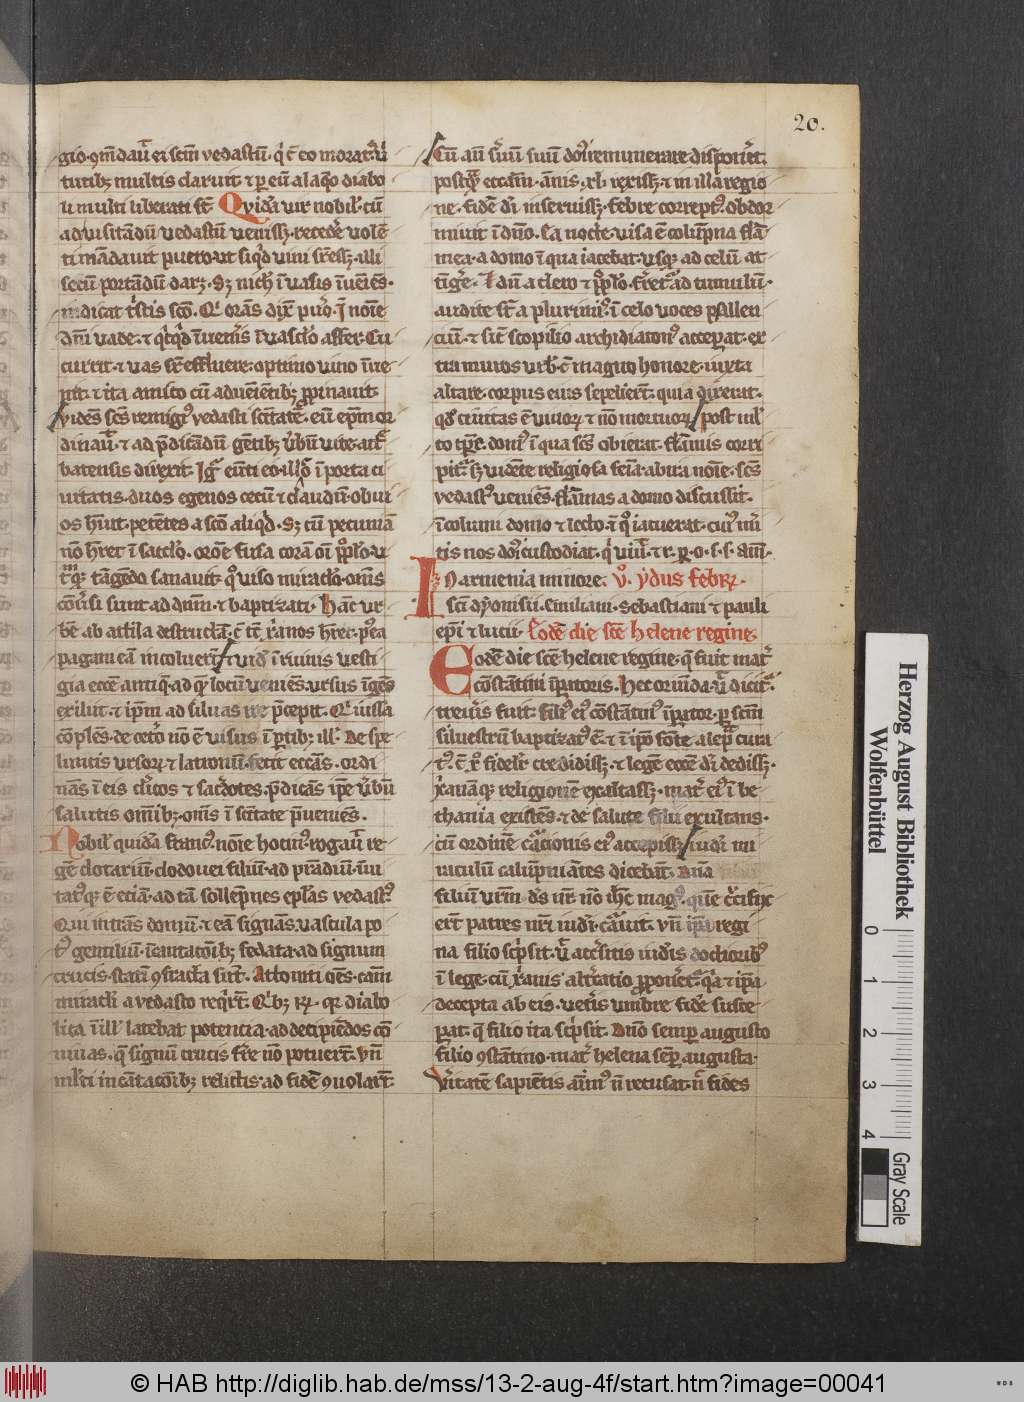 20.
gio·ꝯm̄dauit̄ ei scm̄ vedastū· q̇ ē eo morat᷒·ui
tutibꝫ multis claruit ⁊ ꝑ eū al a ꝗo diabo
li multi liberati st̄ Qvidā uir nobil᷒ cū
ad uisitādū vedastū venissꝫ· recede᷒ volē
ti mādauit puero ut siqͥd vini sup̄essꝫ· illi
secū portādū darꝫ· Sꝫ nichͥ ī uasis īueniēs·
indicat tͥstis scō· Qͥ orās dix̄ puo᷒· ī noīe
dn̄i vade· ⁊ qͥcqͥd īuen̄is ī vasclo᷒ affer· Cu
currit· ⁊ vas sup̄effluere· optimo uino īue
nit· ⁊ ita amico cū aduēiētibꝫ ꝓpinauit
Vidēs scs̄ remigiꝰ vedasti scītatē· eū ep̄m or
dinauit̄· ⁊ ad p̄dicādū gētibꝫ ūbiū vite· att᷒
batensis direxit· Igͥ eūti eo illo᷒ ī porta ci
uitatis· duos egenos cecū ⁊ claudū· obui
os hūit· petētes a scō aliqͥd· Sꝫ cū pecuniā
nō hr̄et ī sacclo᷒· orōe fusa corā oī pp̄lo· v
t᷒mqꝫ tāgēdo sanauit· qͦ uiso miraclo᷒· om̄s
cōūsi sunt ad dn̄m· ⁊ baptizati· hāc ur
bē ab attila destructā· ē tē xͥanos hr̄et· pꝰea
pagani eā incoluer̄t· ⁊ uidˢ ī ruinis vesti
gia ecc̄e antiq̄· ad q̄ locū veniēs· ursus īgēs
exiluit· ⁊ ip̄m ad siluas ire p̄cepit· Qͥ iussa
cōplēs· de cetō nō ē uisus ī ꝑtibꝫ ill᷒· De spe
luncis ursoꝝ ⁊ latronū· fecit ecc̄as· ordi
nās ī eis cl̄icos ⁊ sac̄dotes· p̄dicās ip̄e ūbū
salutis om̄ibꝫ· om̄s ī scītate p̄ueniēs·
Nobil᷒ quidā francꝰ noīe hocinꝰ· rogauit̄ re
gē clotariū· clodouei filiū· ad prādiū· īui
tatꝰqꝫ ē etiā· ad tā sollēpnes epl̄as vedastꝰ
Qui intrās domū· ⁊ eā signās· vascula po
tꝰ gentiliū· īcantacōibꝫ fedata· ad signum
crucis· statī ꝯfracta sūt· Attoniti oēs· cām
miracli a vedasto reqͥrt̄· Qͥbꝫ rn̄· qꝛ diabo
lica ī ill᷒ latebat potencia· ad decipiēdos cō
uiuas· q̄ signū crucis ferre nō potuerūt· vn̄
ml᷒ti incātacōibꝫ relictis· ad fidē ꝯuolart̄
Cū aūt s᷒uū suū dn̄s remunerare disponeret·
postqͣ᷒ ecc̄am· ānis xl᷒ rexissꝫ· ⁊ in illa regio
ne· fidē dn̄i inseruissꝫ· febre correptꝰ· obdor
miuit ī dn̄o· Ea nocte· uisa ē colūpna flā
mea· a domo ī qua iacebat· usqꝫ ad celū at
tīgē· Ad hn̄ a clero ⁊ pp̄lo· ferr̄et᷒ ad tumulū·
audite st̄ a plurimiꝰ· ī celo voces psallen
ciū· ⁊ sic̄ scopilio archidiaconꝰ acceperat· ex
tra muros urbˢ· cū magno honore· iuxta
altare· corpus eius sepelier̄t· quia dixerat·
qd̄ ciuitas ē viuoꝝ ⁊ nō mortuoꝝ· post ml᷒
to tp̄re· domꝰ ī qua scs̄ obierat· flāmis corri
pit᷒· sꝫ vidēte religiosa feīa abita noīe· scs̄
vedastꝰ veniēs· flāmas a domo discussit·
īcolumi domo ⁊ lecto· ī qͦ iacuerat· cuiꝰ mͥ
tis nos dn̄s custodiat· qͥ uiuit̄ ⁊ r̄· ꝑ· o· s· s· am̄·
In armenia minore· vͦ· ydus febrꝝ·
sci dyonisii· Emiliani· Sebastiani ⁊ pauli
ep̄i ⁊ lucii· Eodē die scē Helene regine·
Eodē die scē helene regine· q̄ fuit mat᷒
cōstātini īpatoris· Hec oriūda· ut̄ dicit᷒·
treuˢis fuit· filiꝰ eiꝰ cōstātinꝰ īpator· ꝑ scm̄
siluestrū baptizatꝰ ē· ⁊ ī ip̄o fōte a lep̄ cura
tꝰ· ē xͦ fidelit᷒ credidissꝫ· ⁊ legē ecc̄e dn̄i dedissꝫ·
xͥanāqꝫ religionē exaltassꝫ· mat᷒ eiꝰ ī be
thania existēs· ⁊ de salute filii exultans·
cū ordinē cātionis eiꝰ accepissꝫ· iudei mi
raculū calūpniātes dicebāt· Dn̄a
filiū vr̄m· dˢs nr̄· nō ih̄c magꝰ· quē crucifix
er̄t patres nr̄i iudei· cūauit· vn̄ ip̄a regi
na filio scͥpsit· ut̄ accˢsitis iudeis doctoribꝰ
ī lege· cū xͥanis alt᷒catio ꝓponer̄et᷒· qͣ ⁊ ip̄a
decepta ab eis· vetˢis umbre fidē susce
perat· q̄ filio ita scͥpsit· Dn̄o semꝑ augusto
filio ꝯstātino· mat᷒ helena sēꝑ augusta·
Vˢitatē sapiētis aīmꝰ n̄ recusat· n̄ fides
Herzog August Bibliothek
Wolfenbüttel
0 1 2 3 4
Gray Scale
© HAB http://diglib.hab.de/mss/13-2-aug-4f/start.htm?image=00041